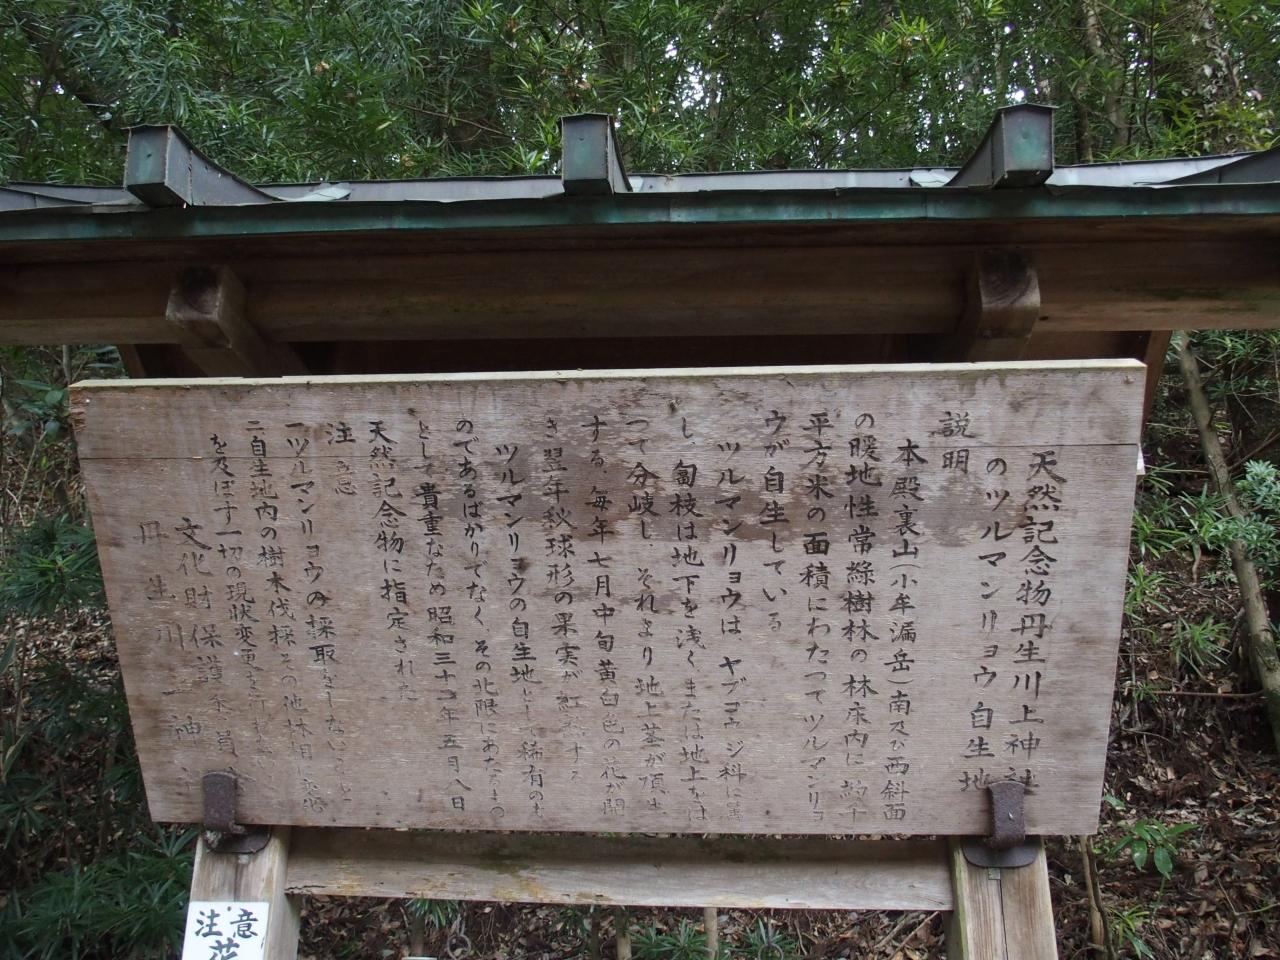 天然記念物丹生川上神社
のツルマンリョウ自生地
説明
本殿裏山(小牟漏岳)南及び西斜面
の暖地性常緑樹林の林床内に約十
平方米の面積にわたつてツルマンリョ
ウが自生している
ツルマンリョウは ヤブコウジ科に属
し 匐枝は地下を浅く または地上をは
つて分岐し、それより地上茎が頂生
する、毎年七月中旬黄白色の花が開
き翌年秋球形の果実が紅熟する
ツルマンリョウの自生地として稀有のも
のであるばかりでなく その北限にあたるもの
として貴重なため昭和三十二年五月八日
天然記念物に指定された
注意
一ツルマンリョウの採取をしないこと
二自生地内の樹木伐採その他林相に
を及ぼす一切の現状変更を
文化財保護委員会
丹生川上神社
注意
花